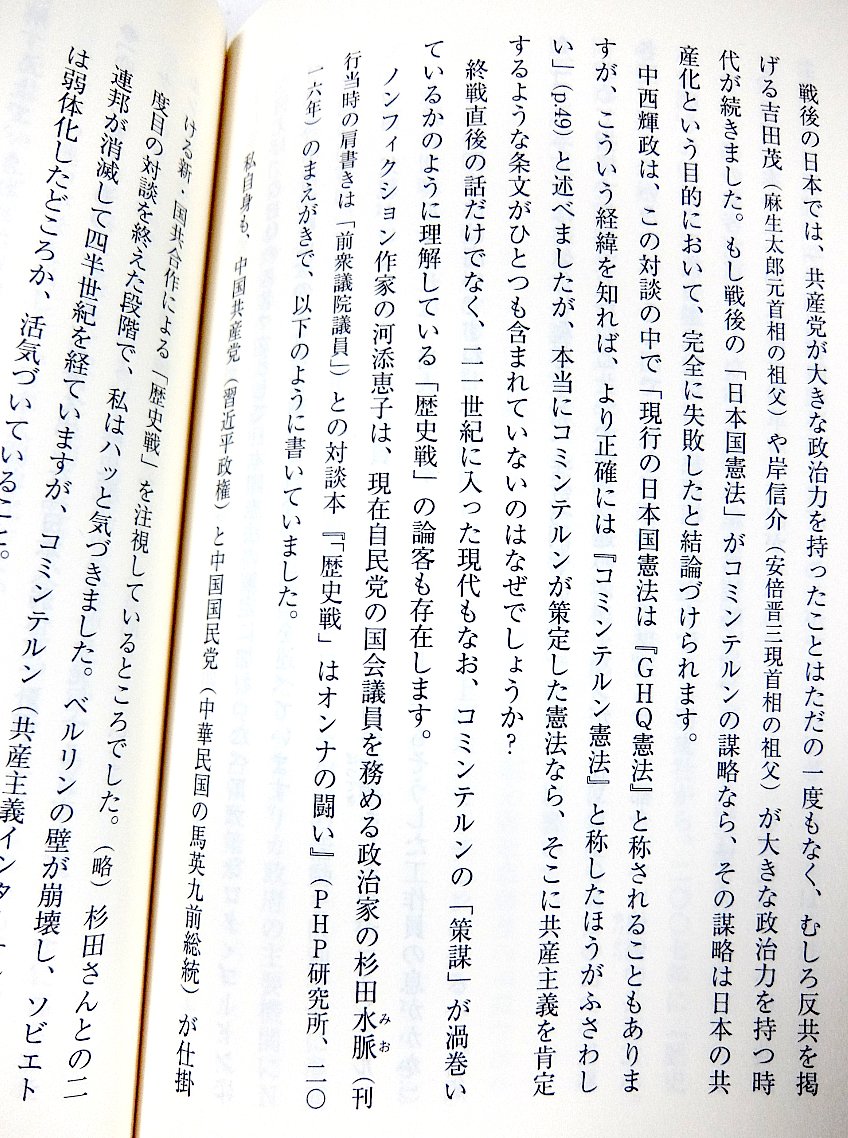 戦後の日本では、共産党が大きな政治力を持ったことはただの一度もなく、むしろ反共を掲
げる吉田茂（麻生太郎元首相の祖父）や岸信介（安倍晋三現首相の祖父）が大きな政治力を持つ時
代が続きました。もし戦後の「日本国憲法」がコミンテルンの謀略なら、その謀略は日本の共
産化という目的において、完全に失敗したと結論づけられます。
中西輝政は、この対談の中で「現行の日本国憲法は『GHQ憲法』と称されることもありま
すが、こういう経緯を知れば、より正確には『コミンテルン憲法』と称したほうがふさわし
い」（p.49）と述べましたが、本当にコミンテルンが策定した憲法なら、そこに共産主義を肯定
するような条文がひとつも含まれていないのはなぜでしょうか？
終戦直後の話だけでなく、二一世紀に入った現代もなお、コミンテルンの「策謀」が渦巻い
ているかのように理解している「歴史戦」の論客も存在します。
ノンフィクション作家の河添恵子は、現在自民党の国会議員を務める政治家の杉田水脈（刊
みお
行当時の肩書きは「前衆議院議員」）との対談本『「歴史戦」はオンナの闘い』（PHP研究所、二〇
一六年）のまえがきで、以下のように書いていました。
私自身も、中国共産党（習近平政権）と中国国民党（中華民国の馬英九前総統）が仕掛
ける新・国共合作による「歴史戦」を注視しているところでした。（略）杉田さんとの二
度目の対談を終えた段階で、私はハッと気づきました。ベルリンの壁が崩壊し、ソビエト
連邦が消滅して四半世紀を経ていますが、コミンテルン（共産主義インターナ
は弱体化したどころか、活気づいていること。